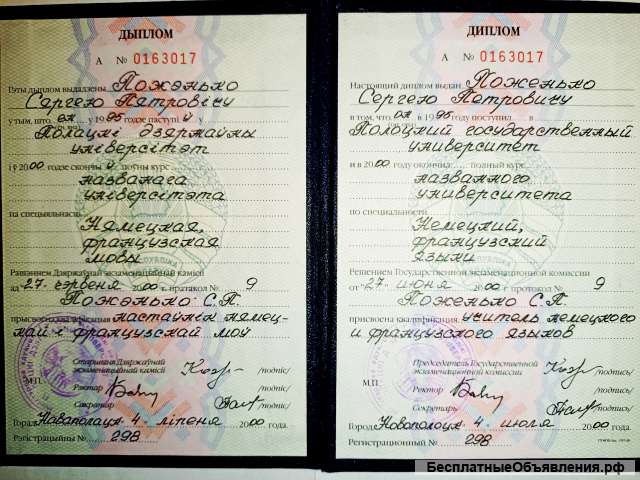 ДЫПЛОМ
А № 0163017
Гэты дыплом выдадзены Пожэнько
Сергею Пятровічу
у тым, што ён у 1995 годзе паступіў
Полацкі дзяржаўны
універсітэт
і ў 2000 годзе скончыў поўны курс
названага
універсітэта
па спецыяльнасці
Нямецкая,
французская
мовы
Рашэннем Дзяржаўнай экзаменацыйнай камісіі
ад 27 чэрвеня 2000 г. пратакол № 9
Пожэнько С.П.
прысвоена кваліфікацыя настаўнік нямец-
кай і французскай моў
Старшыня Дзяржаўнай
экзаменацыйнай камісіі /подпіс/
М.П.
Рэктар /подпіс/
Сакратар /подпіс/
Горад Новополацк 4 ліпеня 2000 года.
Рэгістрацыйны № 298
ДИПЛОМ
А № 0163017
Настоящий диплом выдан Поженько
Сергею Петровичу
в том, что он в 1995 году поступил в
Полоцкий государственный
университет
и в 2000 году окончил полный курс
названного
университета
по специальности
Немецкий,
французский
языки
Решением Государственной экзаменационной комиссии
от 27 июня 2000 г. протокол № 9
Поженько С.П.
присвоена квалификация учитель немецкого
и французского языков
Председатель Государственной
экзаменационной комиссии /подпись/
М.П.
Ректор /подпись/
Секретарь /подпись/
Город Новополоцк 4 июля 2000 года.
Регистрационный № 298
БесплатныеОбъявления.рф